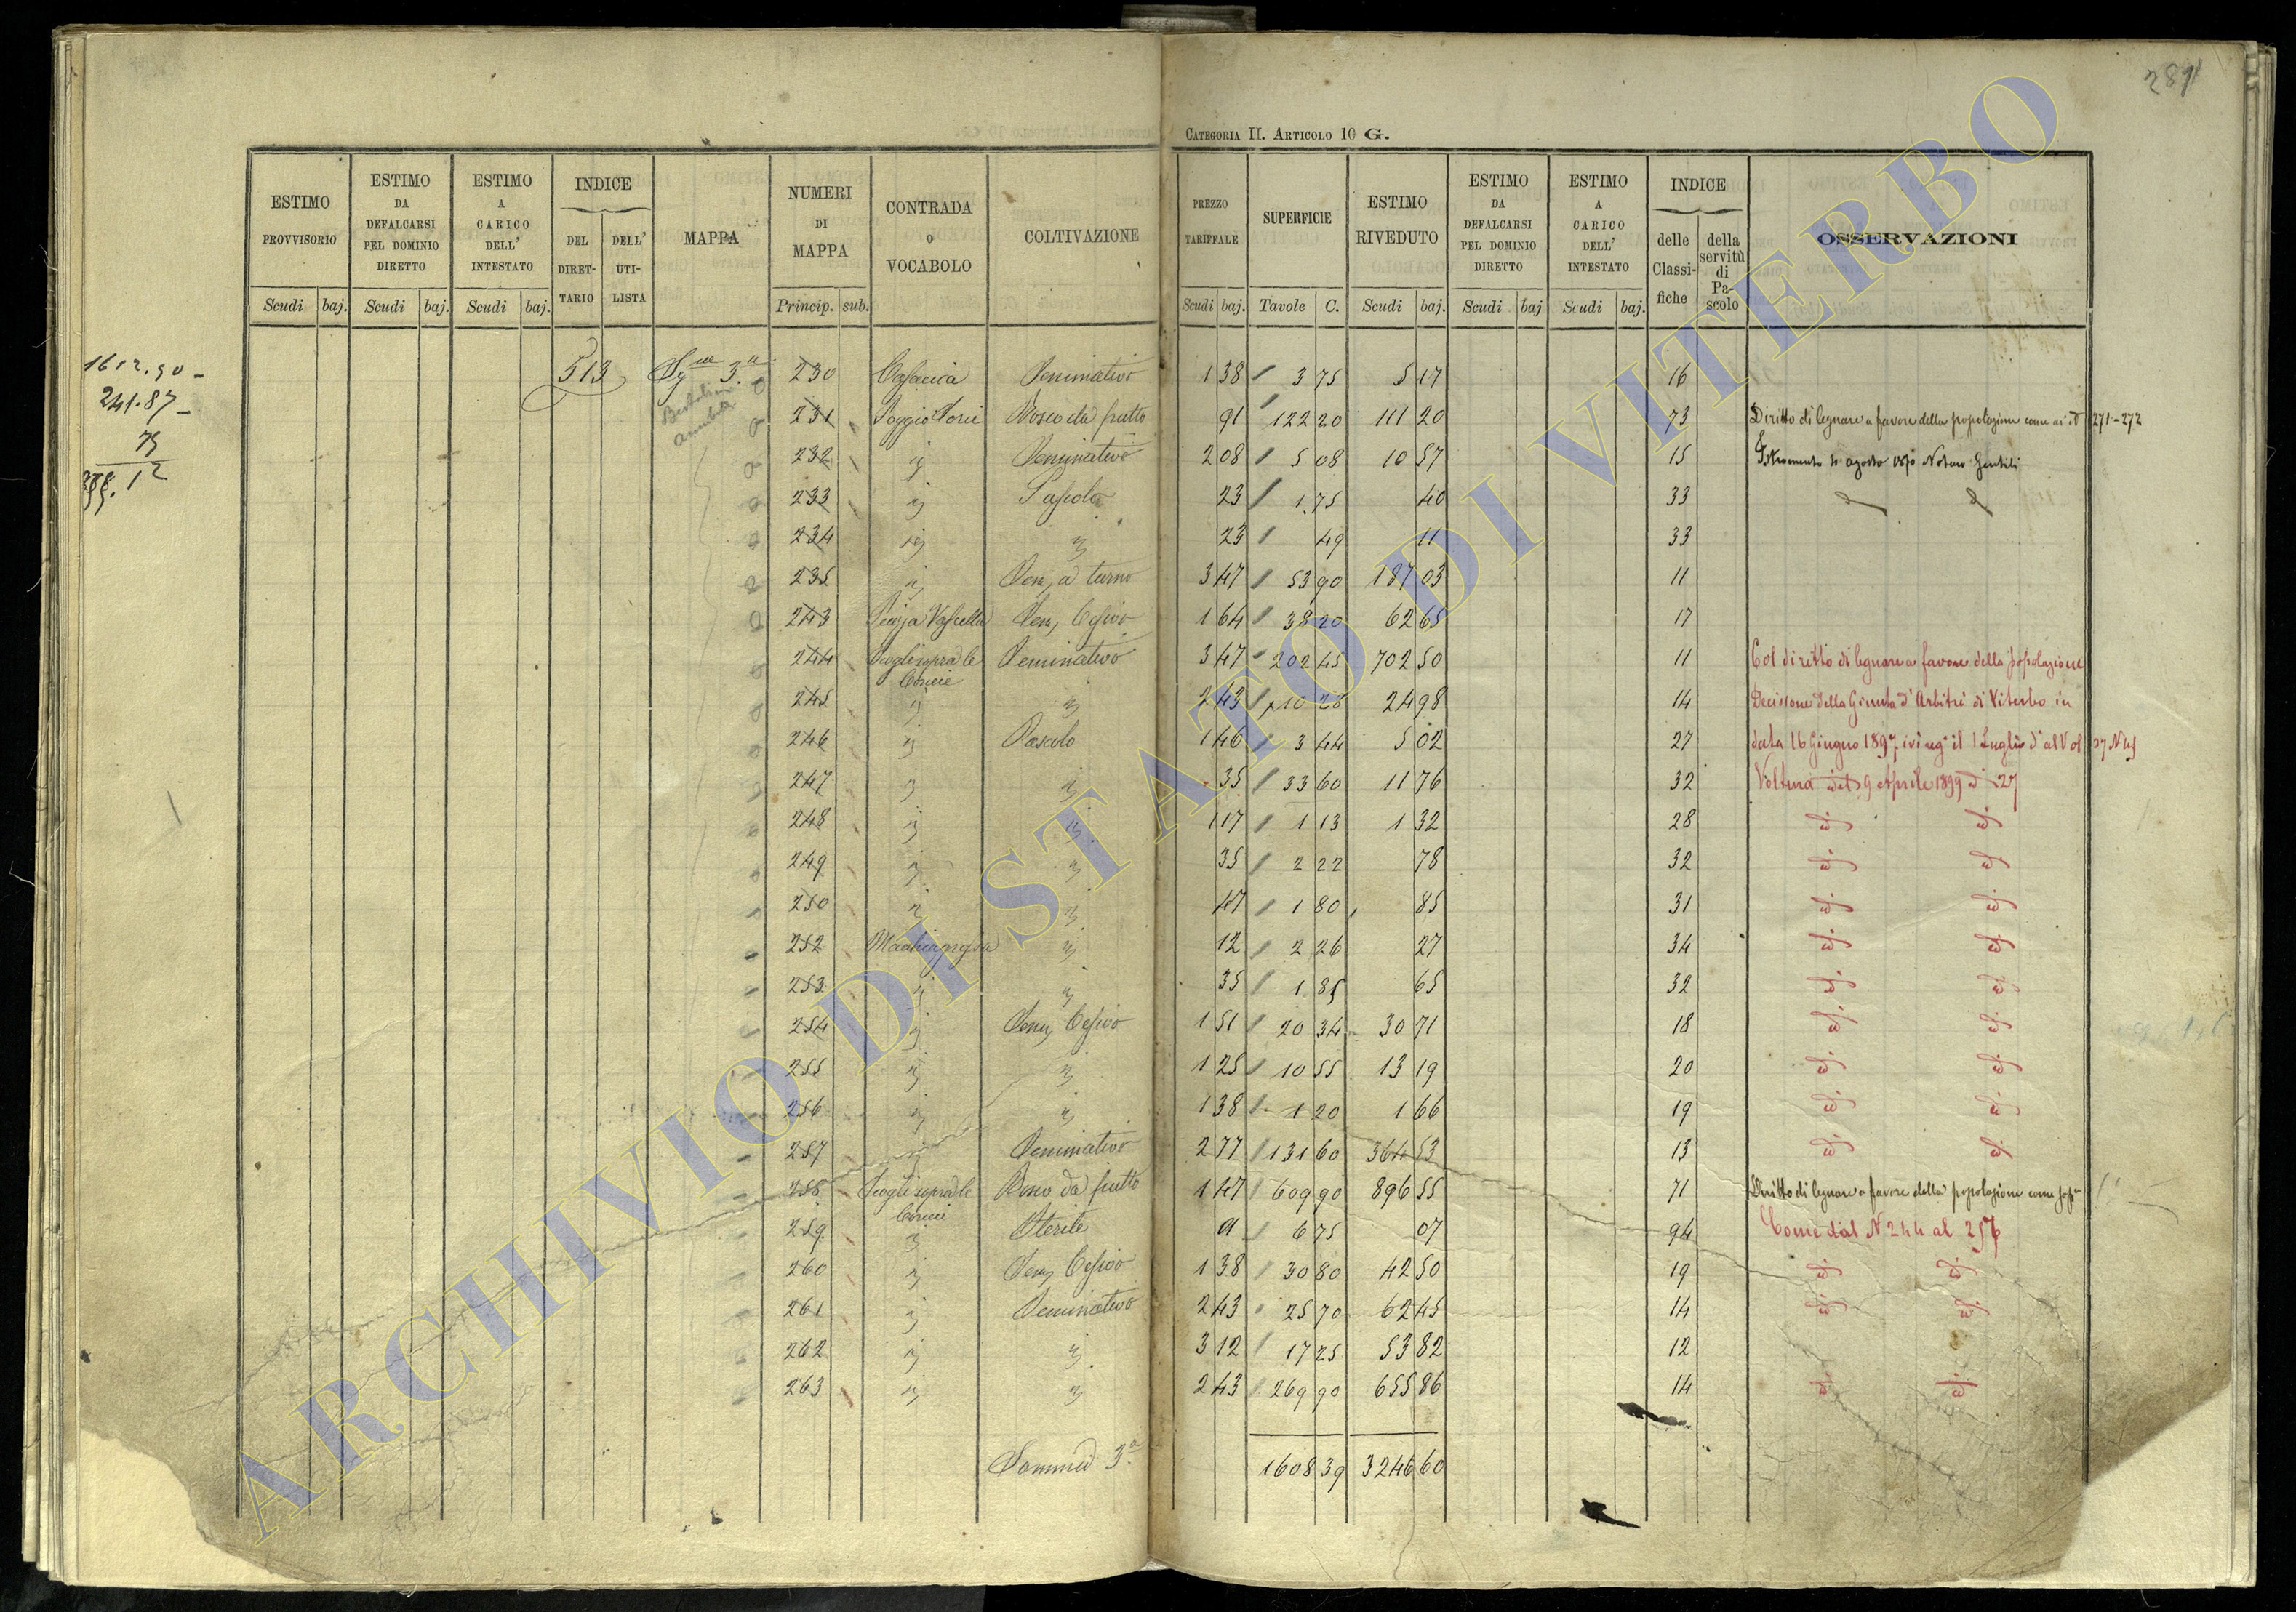 281
CATEGORIA II. ARTICOLO 10 G.
ESTIMO PROVVISORIO | ESTIMO DA DEFALCARSI PEL DOMINIO DIRETTO | ESTIMO A CARICO DELL' INTESTATO | INDICE DEL DIRETTARIO | DELL' UTILISTA | MAPPA | NUMERI DI MAPPA | CONTRADA O VOCABOLO | COLTIVAZIONE | PREZZO TARIFFALE | SUPERFICIE | ESTIMO RIVEDUTO | ESTIMO DA DEFALCARSI PEL DOMINIO DIRETTO | ESTIMO A CARICO DELL' INTESTATO | INDICE delle Classifiche | della servitù di Pascolo | OSSERVAZIONI
Scudi | baj. | Scudi | baj. | Scudi | baj. | Princip. | sub. | Scudi | baj. | Tavole | C. | Scudi | baj. | Scudi | baj | Scudi | baj.
1612.90
241.87
75
513 | 3.a | 230 | Seminativo | 1 38 | 3 75 | 5 17 | 16
231 | Poggio | Bosco da frutto | 91 | 122 20 | 111 20 | 73 | Diritto di legnare a favore della popolazione come ai N 271-272
232 | " | Seminativo | 2 08 | 5 08 | 10 57 | 15 | Istromento agosto 1870 Notaro Gentili
233 | " | Pascolo | 23 | 1 75 | 40 | 33
234 | " | " | 23 | 49 | 11 | 33
235 | " | Sem, a turno | 3 47 | 53 90 | 187 03 | 11
243 | Sem, Cesivo | 1 64 | 38 20 | 62 65 | 17
244 | Scogli sopra le | Seminativo | 3 47 | 202 45 | 702 50 | 11 | Col diritto di legnare a favore della popolazione
245 | " | " | 2 43 | 10 28 | 24 98 | 14 | Decisione della Giunta d'Arbitri di Viterbo in
246 | " | Pascolo | 1 46 | 3 44 | 5 02 | 27 | data 16 Giugno 1897 ivi reg° il 1 Luglio d° al Vol 27
247 | " | " | 35 | 33 60 | 11 76 | 32 | Voltura 9 Aprile 1899 27
248 | " | " | 1 17 | 1 13 | 1 32 | 28 | id. id.
249 | " | " | 35 | 2 22 | 78 | 32 | id. id.
250 | " | " | 47 | 1 80 | 85 | 31 | id. id.
252 | " | 12 | 2 26 | 27 | 34 | id. id.
253 | " | " | 35 | 1 85 | 65 | 32 | id. id.
254 | " | Sem, Cesivo | 1 51 | 20 34 | 30 71 | 18 | id. id.
255 | " | " | 1 25 | 10 55 | 13 19 | 20 | id. id.
256 | " | " | 1 38 | 1 20 | 1 66 | 19 | id. id.
257 | " | Seminativo | 2 77 | 131 60 | 364 53 | 13 | id. id.
258 | Scogli sopra le | Bosco da frutto | 1 47 | 609 90 | 896 55 | 71 | Diritto di legnare a favore della popolazione come sop.a
259 | " | Sterile | 6 75 | 07 | 94 | Come dal N 244 al 257
260 | " | Sem, Cesivo | 1 38 | 30 80 | 42 50 | 19 | id. id.
261 | " | Seminativo | 2 43 | 25 70 | 62 45 | 14 | id. id.
262 | " | " | 3 12 | 17 25 | 53 82 | 12
263 | " | " | 2 43 | 269 90 | 655 86 | 14 | id. id.
Somma 3.a | 1608 39 | 3246 60
ARCHIVIO DI STATO DI VITERBO